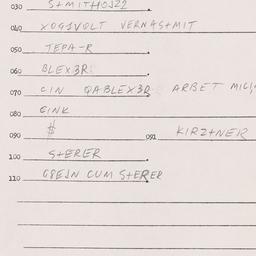 030 S+MITHOJ22
040 XOGSVOLT VERNAS+MIT
050 TEPA-R
060 BLEX3R
070 CIN QABLEX3R ARBET
080 GINK
090 $ 091 KIRZ+NER
100 S+ERER
110 CUM S+ERER